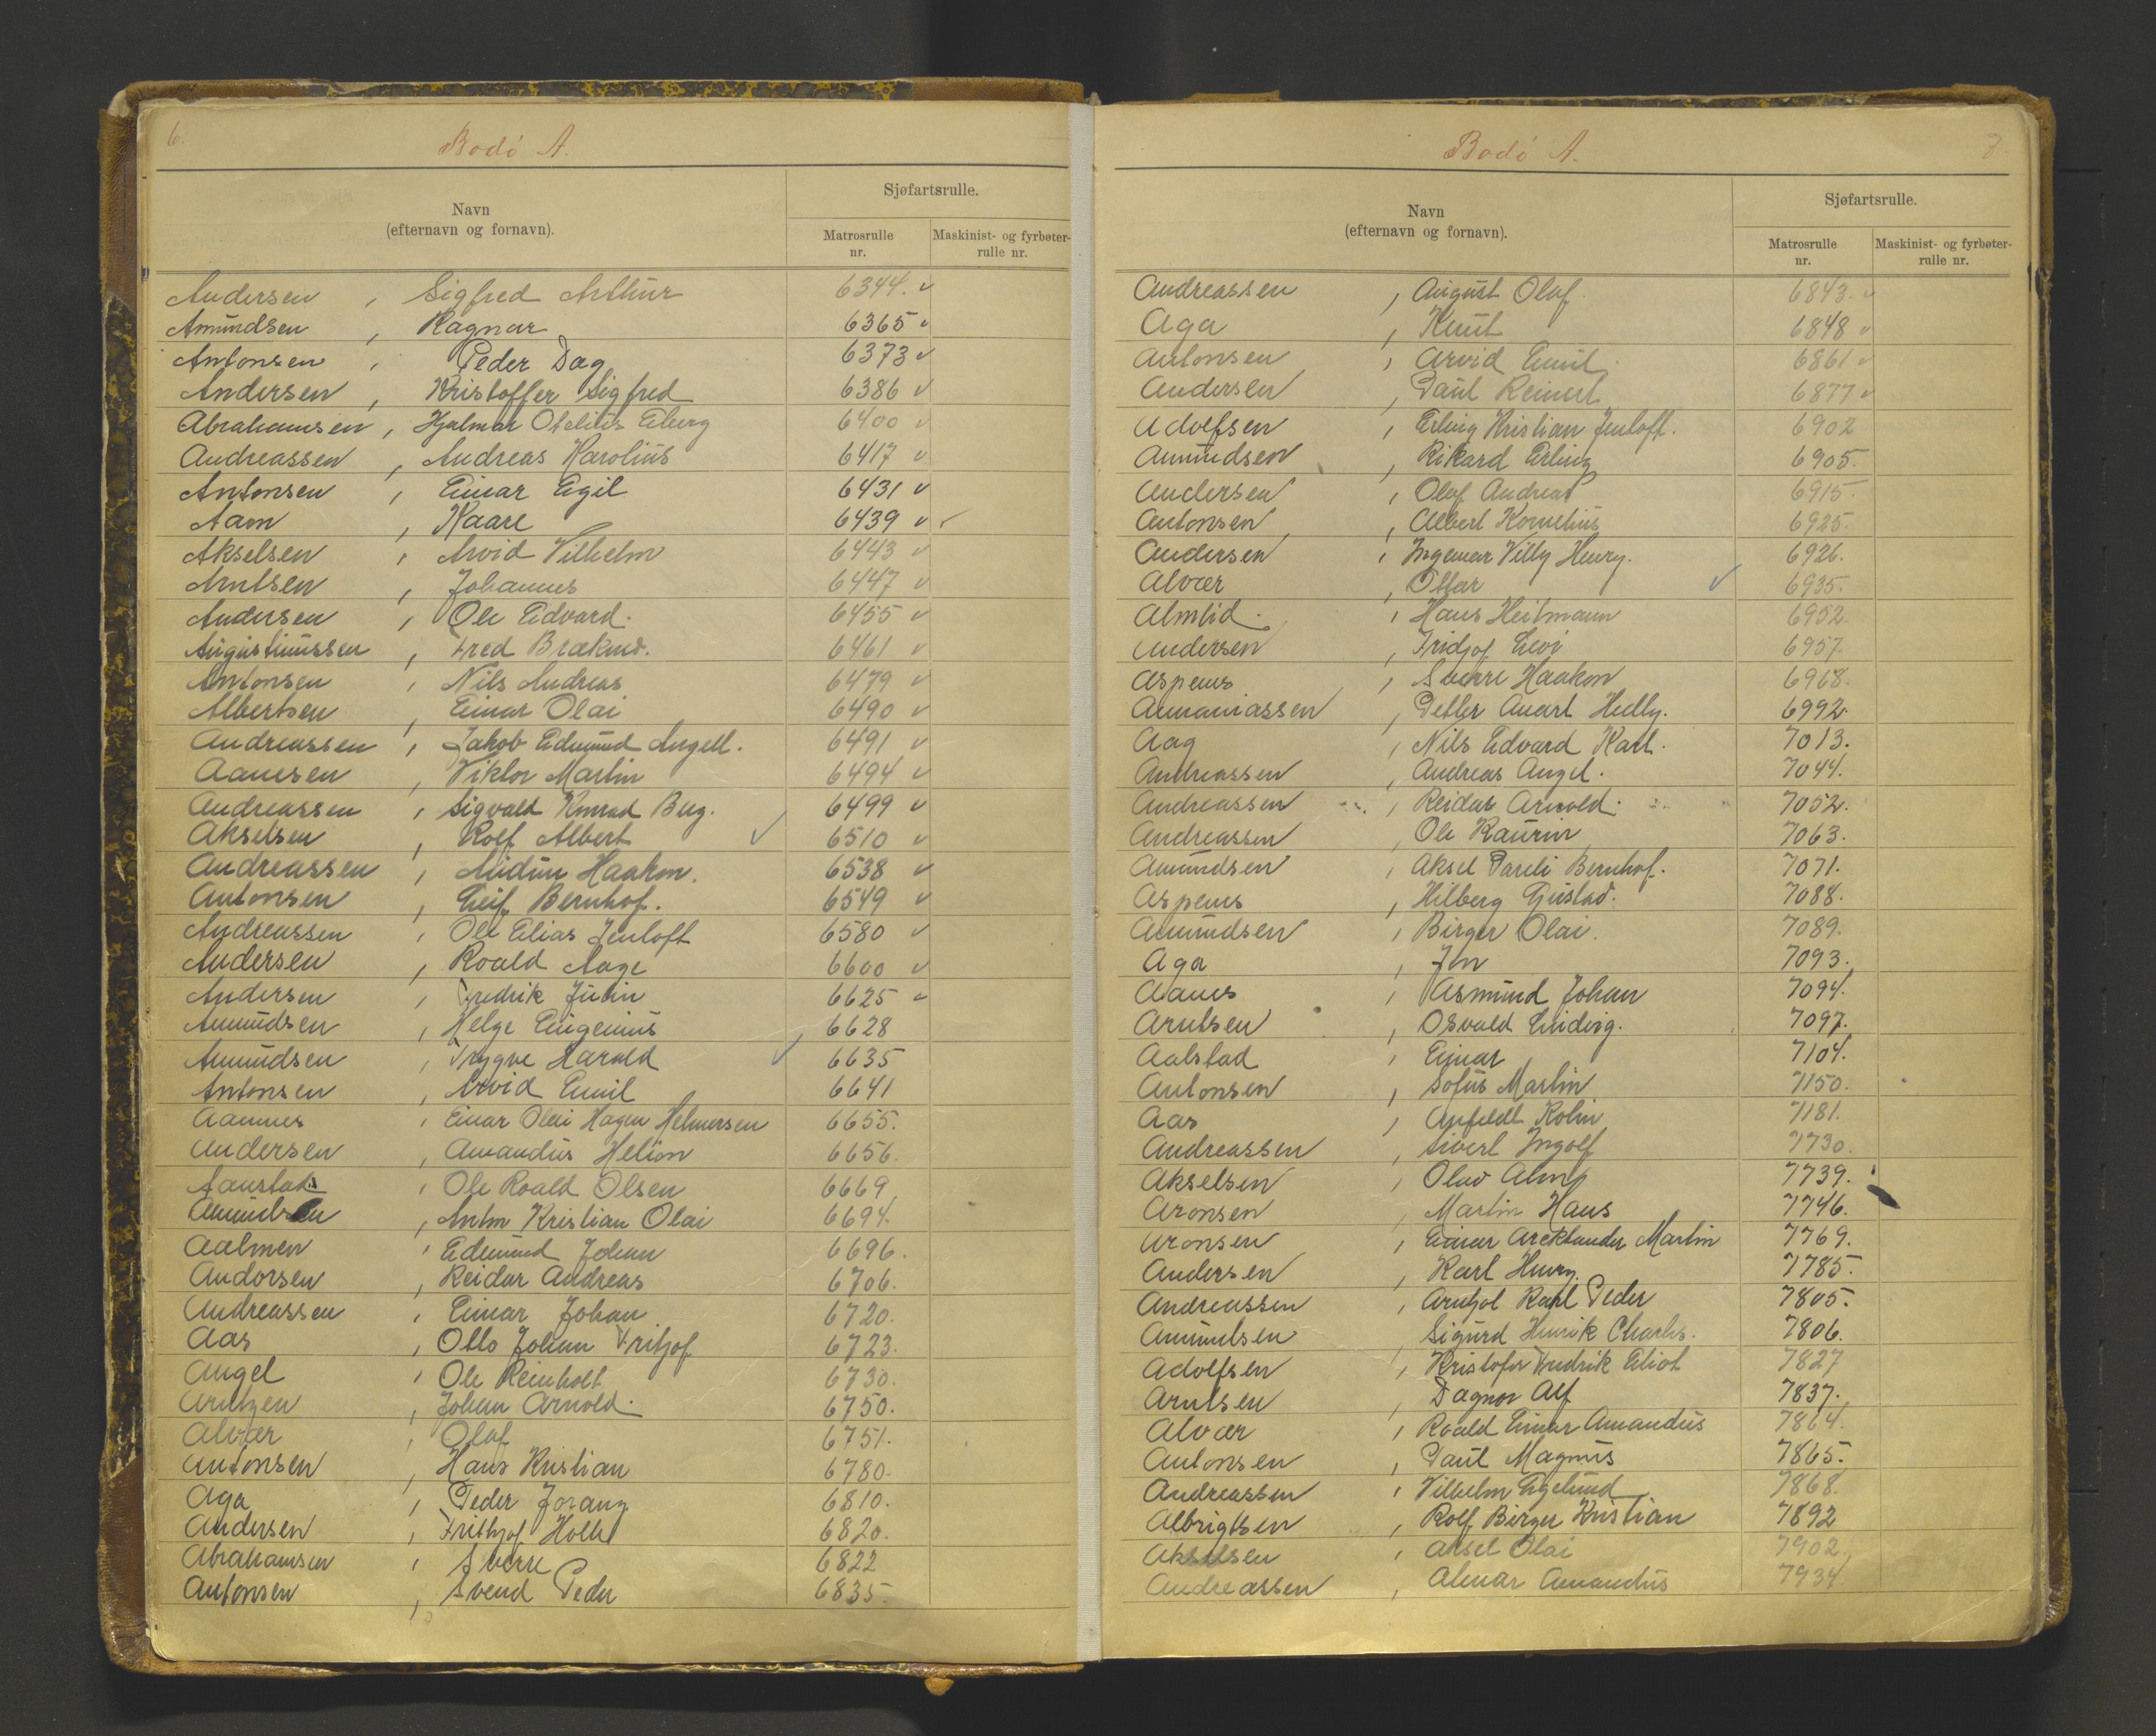 6.
Bodö A.
Navn
(efternavn og fornavn).
Sjøfartsrulle.
Matrosrulle
nr.
Maskinist- og fyrbøter-
rulle nr.
Andersen , Sigfred Arthur 6344. v
Amundsen , Ragnar 6365 v
Antonsen , Peder Dag 6373 v
Andersen , Kristoffer Sigfred 6386 v
Abrahamsen , Hjalmar Eberg 6400 v
Andreassen , Andreas Harolius 6417 v
Antonsen , Einar Egil 6431 v
Aam , Kaare 6439 v
Akselsen , Arvid Vilhelm 6443 v
Arntsen , Johannes 6447 v
Andersen , Ole Edvard. 6455 v
Augustinussen , Fred 6461 v
Antonsen , Nils Andreas 6479 v
Albertsen , Einar Olai 6490 v
Andreassen , Jakob Edmund Angell. 6491 v
Aanesen , Viktor Martin 6494 v
Andreassen , Sigvald Konrad Berg. 6499 v
Akselsen , Rolf Albert ✓ 6510 v
Andreassen , Audun Haakon. 6538 v
Antonsen , Leif Bernhof. 6549 v
Andreassen , Ole Elias Jenloft 6580 v
Andersen , Roald Aage 6600 v
Andersen , Fredrik Julin 6625 v
Amundsen , Helge Eugenius 6628
Amundsen , Trygve Harald ✓ 6635
Antonsen , Arvid Emil 6641
Aannes , Einar Olai Hagen Helmersen 6655.
Andersen , Amandus Helion 6656.
Aanstad , Ole Roald Olsen 6669
Amundsen , Anton Kristian Olai 6694.
Aalmen , Edmund Johan 6696.
Andorsen , Reidar Andreas 6706.
Andreassen , Einar Johan 6720.
Aas , Otto Johan Fritjof 6723.
Angel , Ole Reinholt 6730.
Arntzen , Johan Arnold. 6750.
Alvær , Olaf 6751.
Antonsen , Hans Kristian 6780.
Aga , Peder 6810.
Andersen , Frithjof Holb 6820.
Abrahamsen , Sverre 6822
Antonsen , Svend Peder 6835.
Bodö A.
7
Navn
(efternavn og fornavn).
Sjøfartsrulle.
Matrosrulle
nr.
Maskinist- og fyrbøter-
rulle nr.
Andreassen , August Olaf. 6843. v
Aga , Knut 6848 v
Antonsen , Arvid Emil. 6861 v
Andersen , Paul Reinert 6877 v
Adolfsen , Erling Kristian Jenloft. 6902
Amundsen , Rikard Erling 6905.
Andersen , Olaf Andreas 6915.
Antonsen , Albert Kornelius 6925.
Andersen , Ingemar Villy Henry. 6926.
Alvær , Ottar ✓ 6935.
Almlid. , Hans Heitmann 6952.
Andersen , Fridjof Levi 6957.
Aspenes , Sverre Haakon 6968.
Annaniassen , Petter Anart Helly. 6992.
Aag , Nils Edvard Karl. 7013.
Andreassen , Andreas Angel. 7044.
Andreassen , Reidar Arnold. 7052.
Andreassen , Ole Kaurin 7063.
Amundsen , Aksel Pareli Bernhof. 7071.
Aspenes , Hilberg Gustav. 7088.
Amundsen , Birger Olai. 7089.
Aga , Jon 7093.
Aanes , Asmund Johan 7094.
Arntsen , Osvald Ludvig. 7097.
Aalstad , Einar 7104.
Antonsen , Sofus Martin 7150.
Aas , Anfeldt Robin 7181.
Andreassen , Sivert Ingolf 7730.
Akselsen , Olav Alm 7739.
Aronsen , Martin Hans 7746.
Aronsen , Einar Martin 7769.
Andersen , Karl Henry. 7785.
Andreassen , Arnljot Karl Peder 7805.
Amundsen , Sigurd Henrik Charles. 7806.
Adolfsen , Kristofer Fredrik Eliot 7827
Arntsen , Dagnor Alf 7837.
Alvær , Roald Einar Amandus 7864.
Antonsen , Paul Magnus 7865.
Andreassen , Vilhelm Egelund 7868.
Albrigtsen , Rolf Birger Kristian 7892
Akselsen , Aksel Olai 7902.
Andreassen , Almar Amandus 7934.